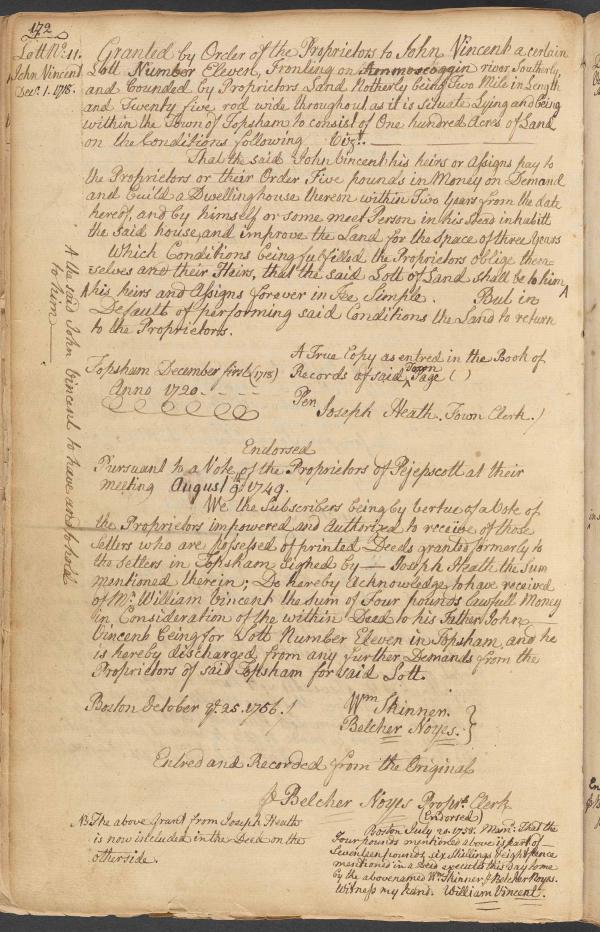 172
Lott No. 11.
John Vincent
Decr. 1. 1718.
Granted by Order of the Proprietors to John Vincent a certain
Lott Number Eleven, Fronting on Ammoscoggin river Southerly
and bounded by Proprietors Land Notherly being Two Mile in Length
and Twenty five rod wide throughout as it is situate Lying and being
within the Town of Topsham to consist of One hundred Acres of Land
on the Conditions following Vizt.
That the said John Vincent his heirs or Assigns pay to
the Proprietors or their Order Five pounds in Money on Demand
and build a Dwellinghouse thereon within Two Years from the date
hereof, and by himself or some meet Person in his stead inhabitt
the said house, and improve the Land for the space of three Years
Which Conditions being fulfilled the Proprietors oblige them-
selves and their Heirs, that the said Lott of Land shall be to him
Λ his heirs and Assigns forever in Fee Simple. But in Λ
Default of performing said Conditions the Land to return
to the Proprietors.
Λ the said John Vincent to have and to hold
to him
Topsham December first (1718)
Anno 1720
A True Copy as entred in the Book of
Records of said Town Page ( )
Per Joseph Heath. Town Clerk. /
Endorsed
Pursuant to a Vote of the Proprietors of Pejepscott at their
meeting August 9th. 1749.
We the Subscribers being by vertue of a Vote of
the Proprietors impowered and Authorized to receive of those
setlers who are possessed of printed Deeds granted formerly to
the setlers in Topsham signed by — Joseph Heath the sum
mentioned therein; Do hereby Acknowledge to have received
of Mr. William Vincent the sum of Four pounds lawfull Money
in Consideration of the within Deed to his Father John
Vincent being for Lott Number Eleven in Topsham, and he
is hereby discharged from any further Demands from the
Proprietors of said Topsham for said Lott.
Boston October ye. 25. 1756. /
Wm Skinner.
Belcher Noyes.
Entred and Recorded from the Original
Belcher Noyes Proprs. Clerk
NB The above Grant from Joseph Heath
is now included in the Deed on the
otherside.
(Endorsed)
Boston July 20. 1758. Memo. That the
Four pounds mentioned above is part of
Seventeen pounds, six shillings & eight pence
mentioned in a Deed executed this day to me
by the abovenamed Wm. Skinner & Belcher Noyes.
Witness my hand. William Vincent.